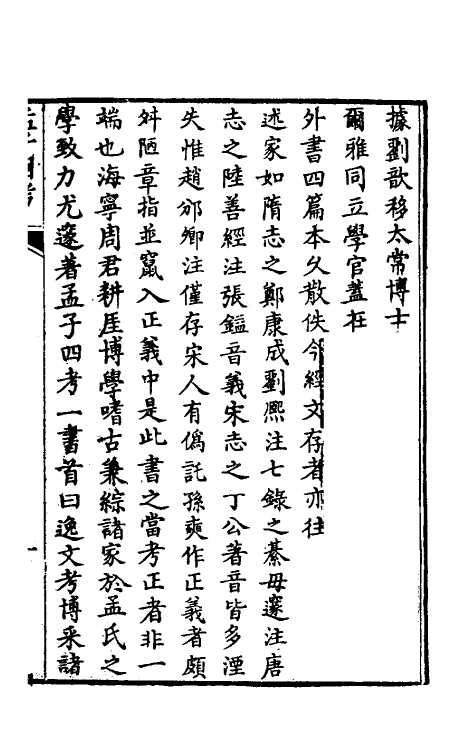 據劉歆移太常博士
爾雅同立學官蓋在
外書四篇本久散佚今經文存者亦往
述家如隋志之鄭康成劉熈注七錄之綦毋邃注唐
志之陸善經注張鎰音義宋志之丁公著音皆多湮
失惟趙邠卿注僅存宋人有僞託孫奭作正義者頗
舛陋章指並竄入正義中是此書之當考正者非一
端也海寧周君耕厓博學嗜古兼綜諸家於孟氏之
學致力尤邃著孟子四考一書首曰逸文考博采諸
孟子四考
一